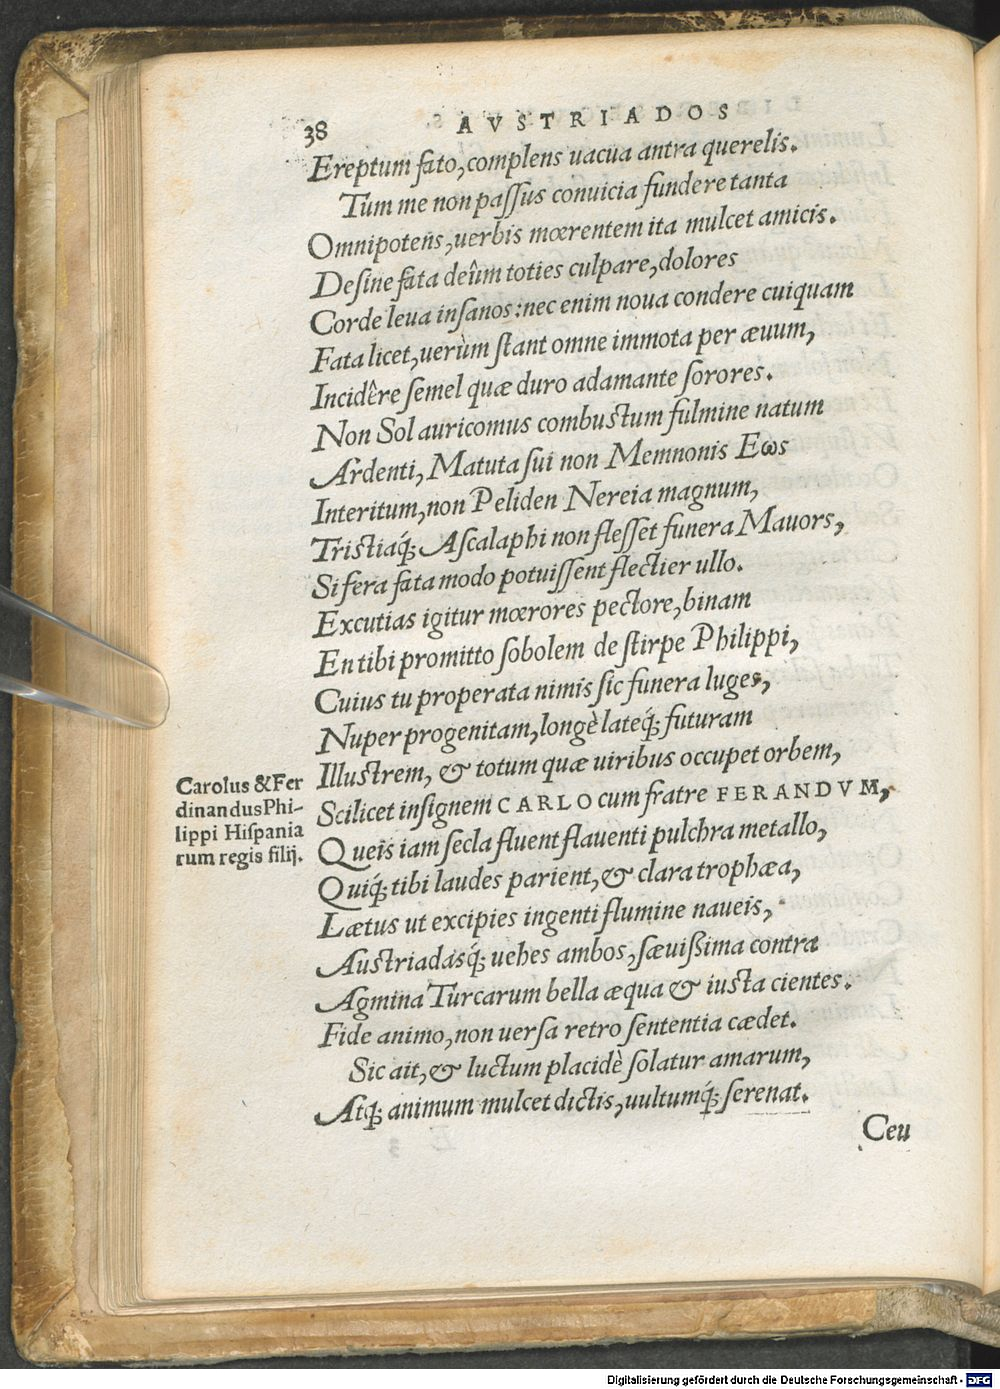 38
AVSTRIADOS
Ereptum fato, complens uacua antra querelis.
Tum me non passus conuicia fundere tanta
Omnipotens, uerbis mœrentem ita mulcet amicis.
Desine fata deûm toties culpare, dolores
Corde leua insanos: nec enim noua condere cuiquam
Fata licet, uerùm stant omne immota per æuum,
Incidêre semel quæ duro adamante sorores.
Non Sol auricomus combustum fulmine natum
Ardenti, Matuta sui non Memnonis Eωs
Interitum, non Peliden Nereia magnum,
Tristiaq́; Ascalaphi non flesset funera Mauors,
Si fera fata modo potuissent flectier ullo.
Excutias igitur mœrores pectore, binam
En tibi promitto sobolem de stirpe Philippi,
Cuius tu properata nimis sic funera luges,
Nuper progenitam, longè lateq́; futuram
Illustrem, & totum quæ uiribus occupet orbem,
Carolus & Fer
dinandus Phi-
lippi Hispania
rum regis filij.
Scilicet insignem CARLO cum fratre FERANDVM,
Queis iam secla fluent flauenti pulchra metallo,
Quiq́; tibi laudes parient, & clara trophæa,
Lætus ut excipies ingenti flumine naueis,
Austriadasq́; uehes ambos, sæuißima contra
Agmina Turcarum bella æqua & iusta cientes.
Fide animo, non uersa retro sententia cædet.
Sic ait, & luctum placidè solatur amarum,
Atq́; animum mulcet dictis, uultumq́; serenat.
Ceu
Digitalisierung gefördert durch die Deutsche Forschungsgemeinschaft - DFG